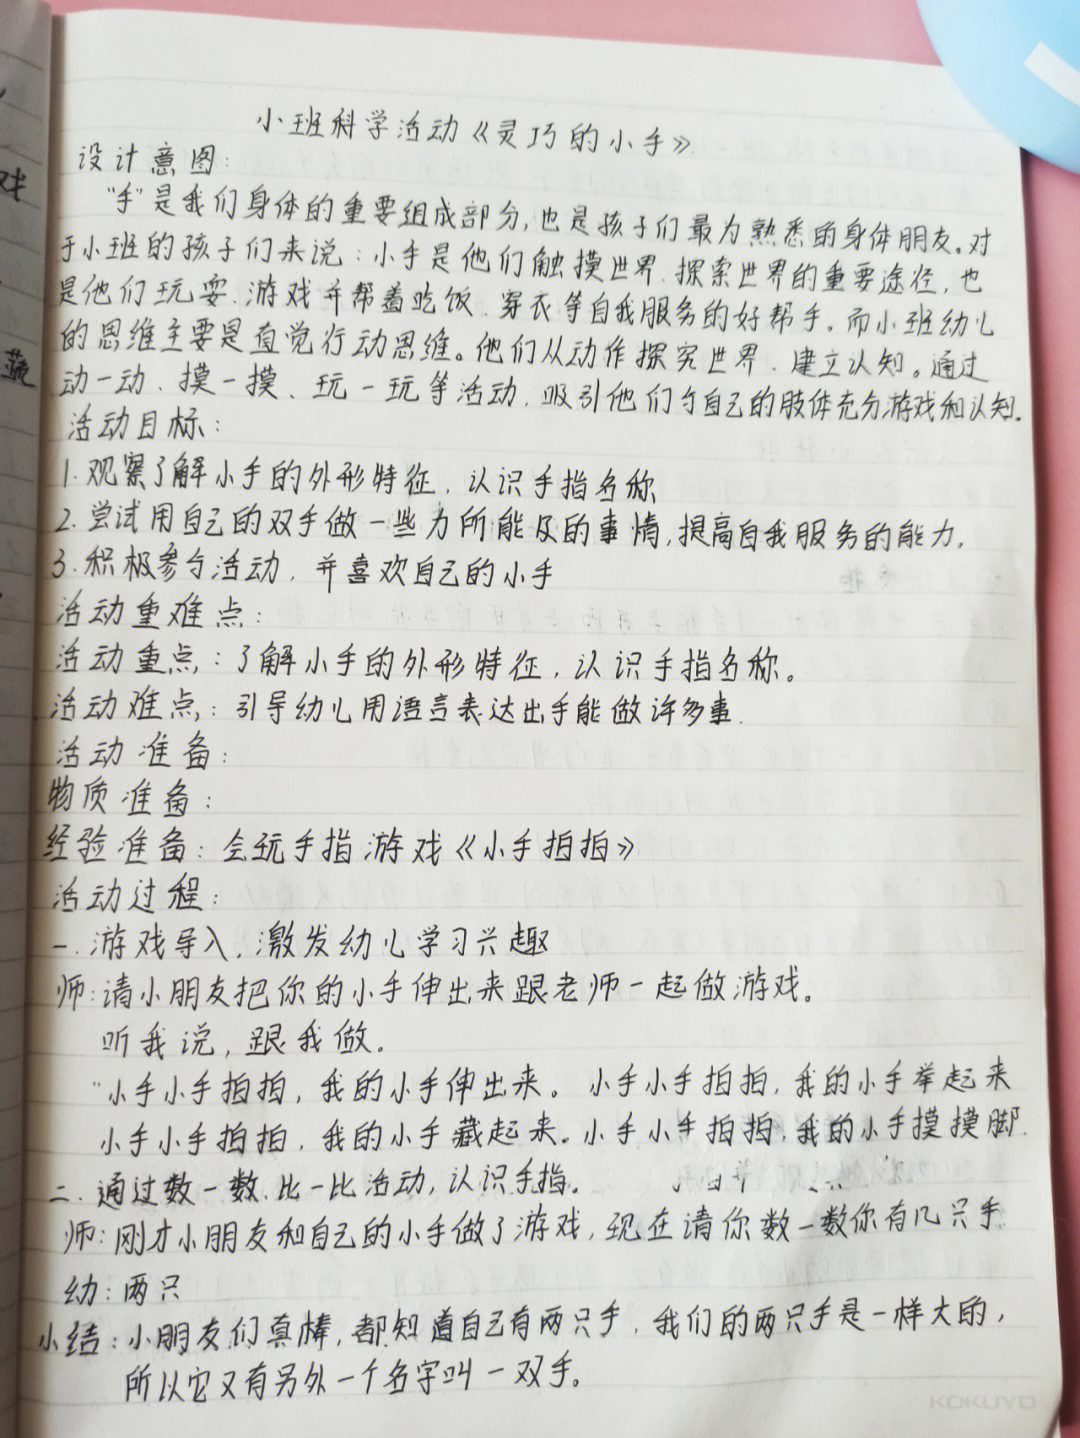 小班科学活动《灵巧的小手》
设计意图:
"手"是我们身体的重要组成部分,也是孩子们最为熟悉的身体朋友。对
于小班的孩子们来说:小手是他们触摸世界、探索世界的重要途径,也
是他们玩耍、游戏并帮着吃饭、穿衣等自我服务的好帮手。而小班幼儿
的思维主要是直觉行动思维。他们从动作探究世界、建立认知。通过
动一动、摸一摸、玩一玩等活动,吸引他们与自己的肢体充分游戏和认知.
活动目标:
1.观察了解小手的外形特征,认识手指名称
2.尝试用自己的双手做一些力所能及的事情,提高自我服务的能力.
3.积极参与活动,并喜欢自己的小手
活动重难点:
活动重点:了解小手的外形特征,认识手指名称。
活动难点:引导幼儿用语言表达出手能做许多事.
活动准备:
物质准备:
经验准备:会玩手指游戏《小手拍拍》
活动过程:
一.游戏导入,激发幼儿学习兴趣
师:请小朋友把你的小手伸出来跟老师一起做游戏。
听我说,跟我做。
"小手小手拍拍,我的小手伸出来。小手小手拍拍,我的小手举起来
小手小手拍拍,我的小手藏起来。小手小手拍拍,我的小手摸摸脚.
二.通过数一数、比一比活动,认识手指。
师:刚才小朋友和自己的小手做了游戏,现在请你数一数你有几只手
幼:两只
小结:小朋友们真棒,都知道自己有两只手,我们的两只手是一样大的,
所以它又有另外一个名字叫一双手。
KOKUYO
戏
蔬